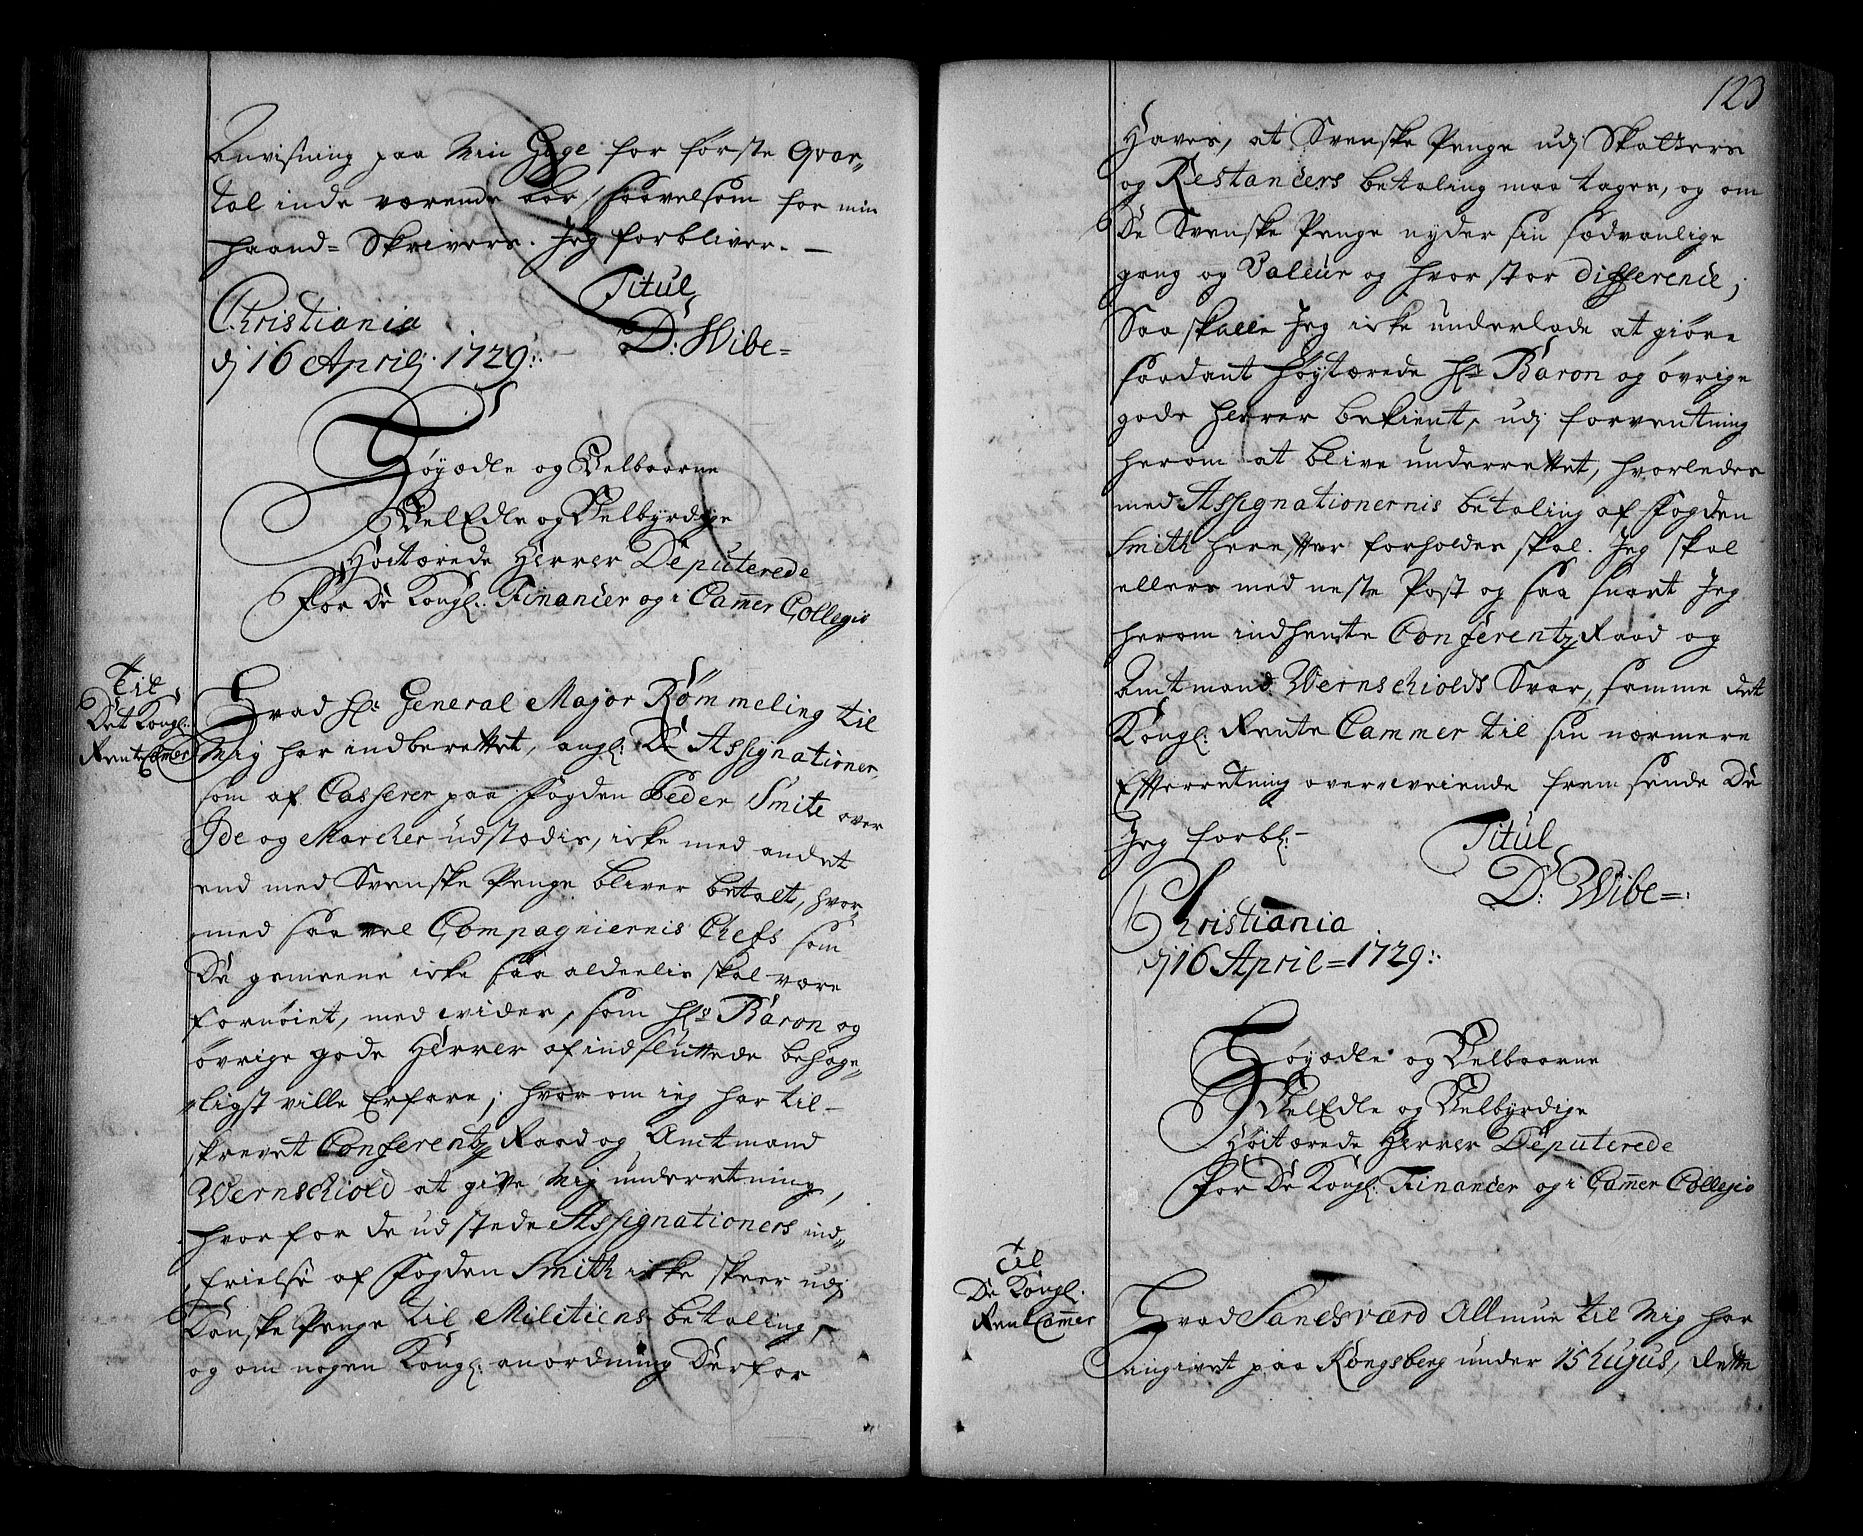 Anvisning paa Min Gage for første Qvar-
tal inde værende aar, saavelsom for min
haand-Skrivers. Jeg forbliver.
Titul
Christiania
dj 16 Aprilj. 1729.
D: Wibe
Høyædle og Velbaarne
VelEdle og Velbyrdige
Høitærede Herrer Deputerede
For De Kongl: Financer og i Camer Collegio
Til
Det Kongl:
RenteCamer
Hvad Hr: General Major Rømmeling til
Mig har indberettet, angl: De Assignationer,
som af Casserer paa Fogden Peder Smite over
Ide og Marcker udstædis, icke med andet
end med Svenske Penge bliver betalt, hvor-
med saa vel Compagniernis Chefs som
De gemeene icke saa aldeelis skal være
fornøiet, med widere, som Hr: Baron og
øvrige gode Herrer af indsluttede behage-
ligst ville Erfare, hvor om ieg har til-
skrevet Conferentz Raad og Amtmand
Wernschiold at give Mig underretning,
hvorfor de udstede Assignationers ind-
frielse af Fogden Smith icke skeer udj
Danske Penge til Militiens betaling,
og om nogen Kongl: anordning Derfor
123
Haves, at Svenske Penge udj Skatters
og Restancers betaling maa tages, og om
De Svenske Penge nyder sin sædvanlige
gang og Valeur og hvor stor difference;
Saa skulle Jeg icke underlade at giøre
saadant Høytærede Hr: Baron og øvrige
gode Herrer bekient, udj forventning
herom at blive underrettet, hvorledes
med Assignationernis betaling af Fogden
Smith herefter forholdes skal. Jeg skal
ellers med neste Post og saa snart Jeg
herom indhente Conferentz Raad og
Amtmand Wernschiolds Svar, samme det
Kongl: Rente Cammer til sin nærmere
Efterretning overeveiende frem sende De
Jeg forbl:
Titul
D: Wibe
Christiania
dj 16 April 1729.
Høyædle og Velbaarne
VelEdle og Velbyrdige
Høitærede Herrer Deputerede
For De Kongl: Financer og i Camer Collegio
Til
De Kongl.
RentCamer
Hvad Sandsværd Allmue til Mig har
angivet paa Kongsberg under 15 hujus, dette